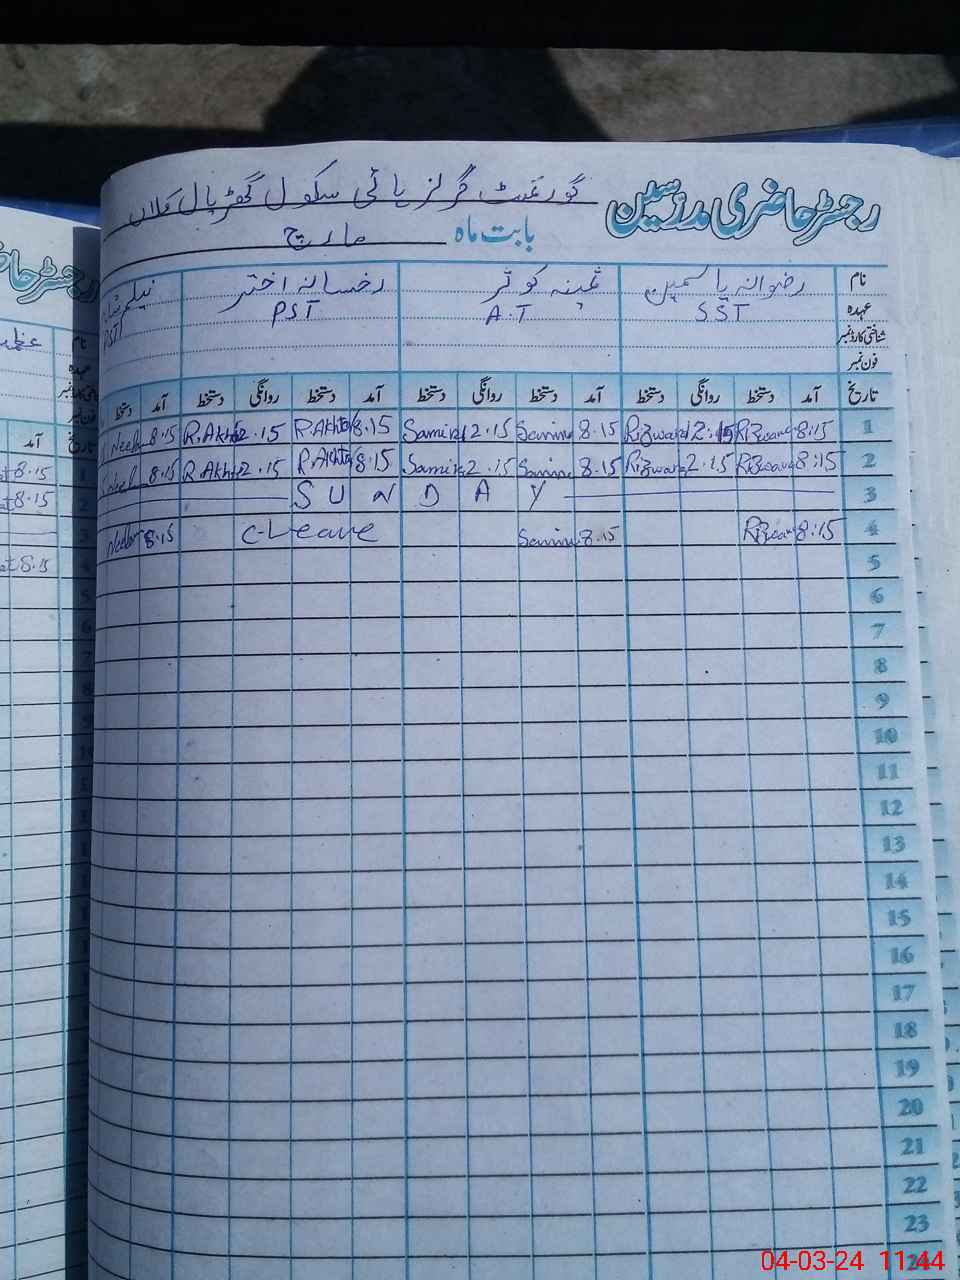 رجسٹر حاضری مدرسین گورنمنٹ گرلز ہائی سکول گھڑیال کلاں
بابت ماہ مارچ
نام رضوانہ یاسمین ثمینہ کوثر رخسانہ اختر نیلم
عہدہ SST A.T PST PST
شناختی کارڈ نمبر
فون نمبر
تاریخ آمد دستخط روانگی دستخط آمد دستخط روانگی دستخط آمد دستخط روانگی دستخط آمد دستخط
1 8:15 Rizwana 2.15 Rizwana 8.15 Samina 2.15 Samina 8.15 R.Akhtar 2.15 R.Akhtar 8.15
2 8:15 Rizwana 2.15 Rizwana 8.15 Samina 2.15 Samina 8.15 R.Akhtar 2.15 R.Akhtar 8.15
3 SUNDAY
4 8:15 Rizwana 8.15 Samina C-Leave 8.15
5
6
7
8
9
10
11
12
13
14
15
16
17
18
19
20
21
22
23
24
رجسٹر
نام
عہدہ
فون نمبر
تاریخ آمد
8.15
8.15
8.15
04-03-24 11:44